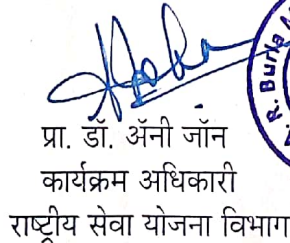 R. Burla
प्रा. डॉ. ॲनी जॉन
कार्यक्रम अधिकारी
राष्ट्रीय सेवा योजना विभाग